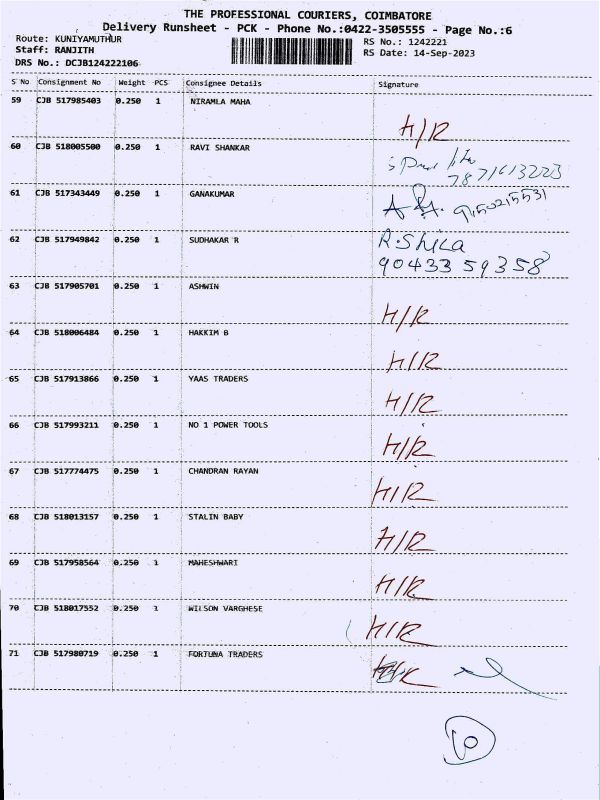 THE PROFESSIONAL COURIERS, COIMBATORE
Delivery Runsheet - PCK - Phone No.:0422-3505555 - Page No.:6
Route: KUNIYAMUTHUR
RS No.: 1242221
Staff: RANJITH
RS Date: 14-Sep-2023
DRS No.: DCJB124222106
S No Consignment No Weight PCS Consignee Details Signature
59 CJB 517985403 0.250 1 NIRAMLA MAHA
H/R
60 CJB 518005500 0.250 1 RAVI SHANKAR
7871613223
61 CJB 517343449 0.250 1 GANAKUMAR
9150215531
62 CJB 517949842 0.250 1 SUDHAKAR R R.Shica
90433 59358
63 CJB 517905701 0.250 1 ASHWIN
H/R
64 CJB 518006484 0.250 1 HAKKIM B
H/R
65 CJB 517913866 0.250 1 YAAS TRADERS
H/R
66 CJB 517993211 0.250 1 NO 1 POWER TOOLS
H/R
67 CJB 517774475 0.250 1 CHANDRAN RAYAN
H/R
68 CJB 518013157 0.250 1 STALIN BABY
H/R
69 CJB 517958564 0.250 1 MAHESHWARI
H/R
70 CJB 518017552 0.250 1 WILSON VARGHESE
H/R
71 CJB 517980719 0.250 1 FORTUNA TRADERS
H/R
10